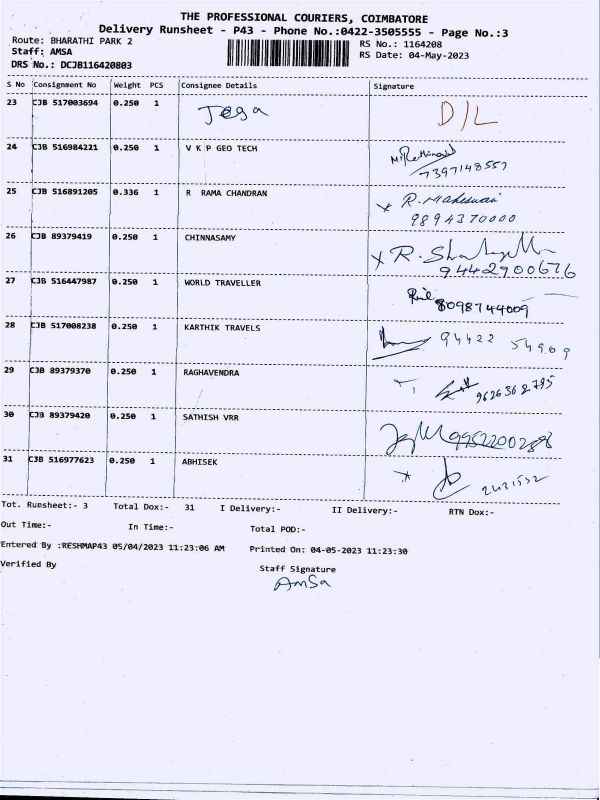 THE PROFESSIONAL COURIERS, COIMBATORE
Delivery Runsheet - P43 - Phone No.:0422-3505555 - Page No.:3
Route: BHARATHI PARK 2
RS No.: 1164208
Staff: AMSA
RS Date: 04-May-2023
DRS No.: DCJB116420803
S No Consignment No Weight PCS Consignee Details Signature
23 CJB 517003694 0.250 1 Jega D/L
24 CJB 516984221 0.250 1 V K P GEO TECH
7397148557
25 CJB 516891205 0.336 1 R RAMA CHANDRAN x R. Maheswari
9894370000
26 CJB 89379419 0.250 1 CHINNASAMY x R.
9442900676
27 CJB 516447987 0.250 1 WORLD TRAVELLER
8098744009
28 CJB 517008238 0.250 1 KARTHIK TRAVELS 94422 54909
29 CJB 89379370 0.250 1 RAGHAVENDRA 9626362795
30 CJB 89379420 0.250 1 SATHISH VRR
31 CJB 516977623 0.250 1 ABHISEK x 2431532
Tot. Runsheet:- 3 Total Dox:- 31 I Delivery:- II Delivery:- RTN Dox:-
Out Time:- In Time:- Total POD:-
Entered By :RESHMAP43 05/04/2023 11:23:06 AM Printed On: 04-05-2023 11:23:30
Verified By
Staff Signature
AmSa